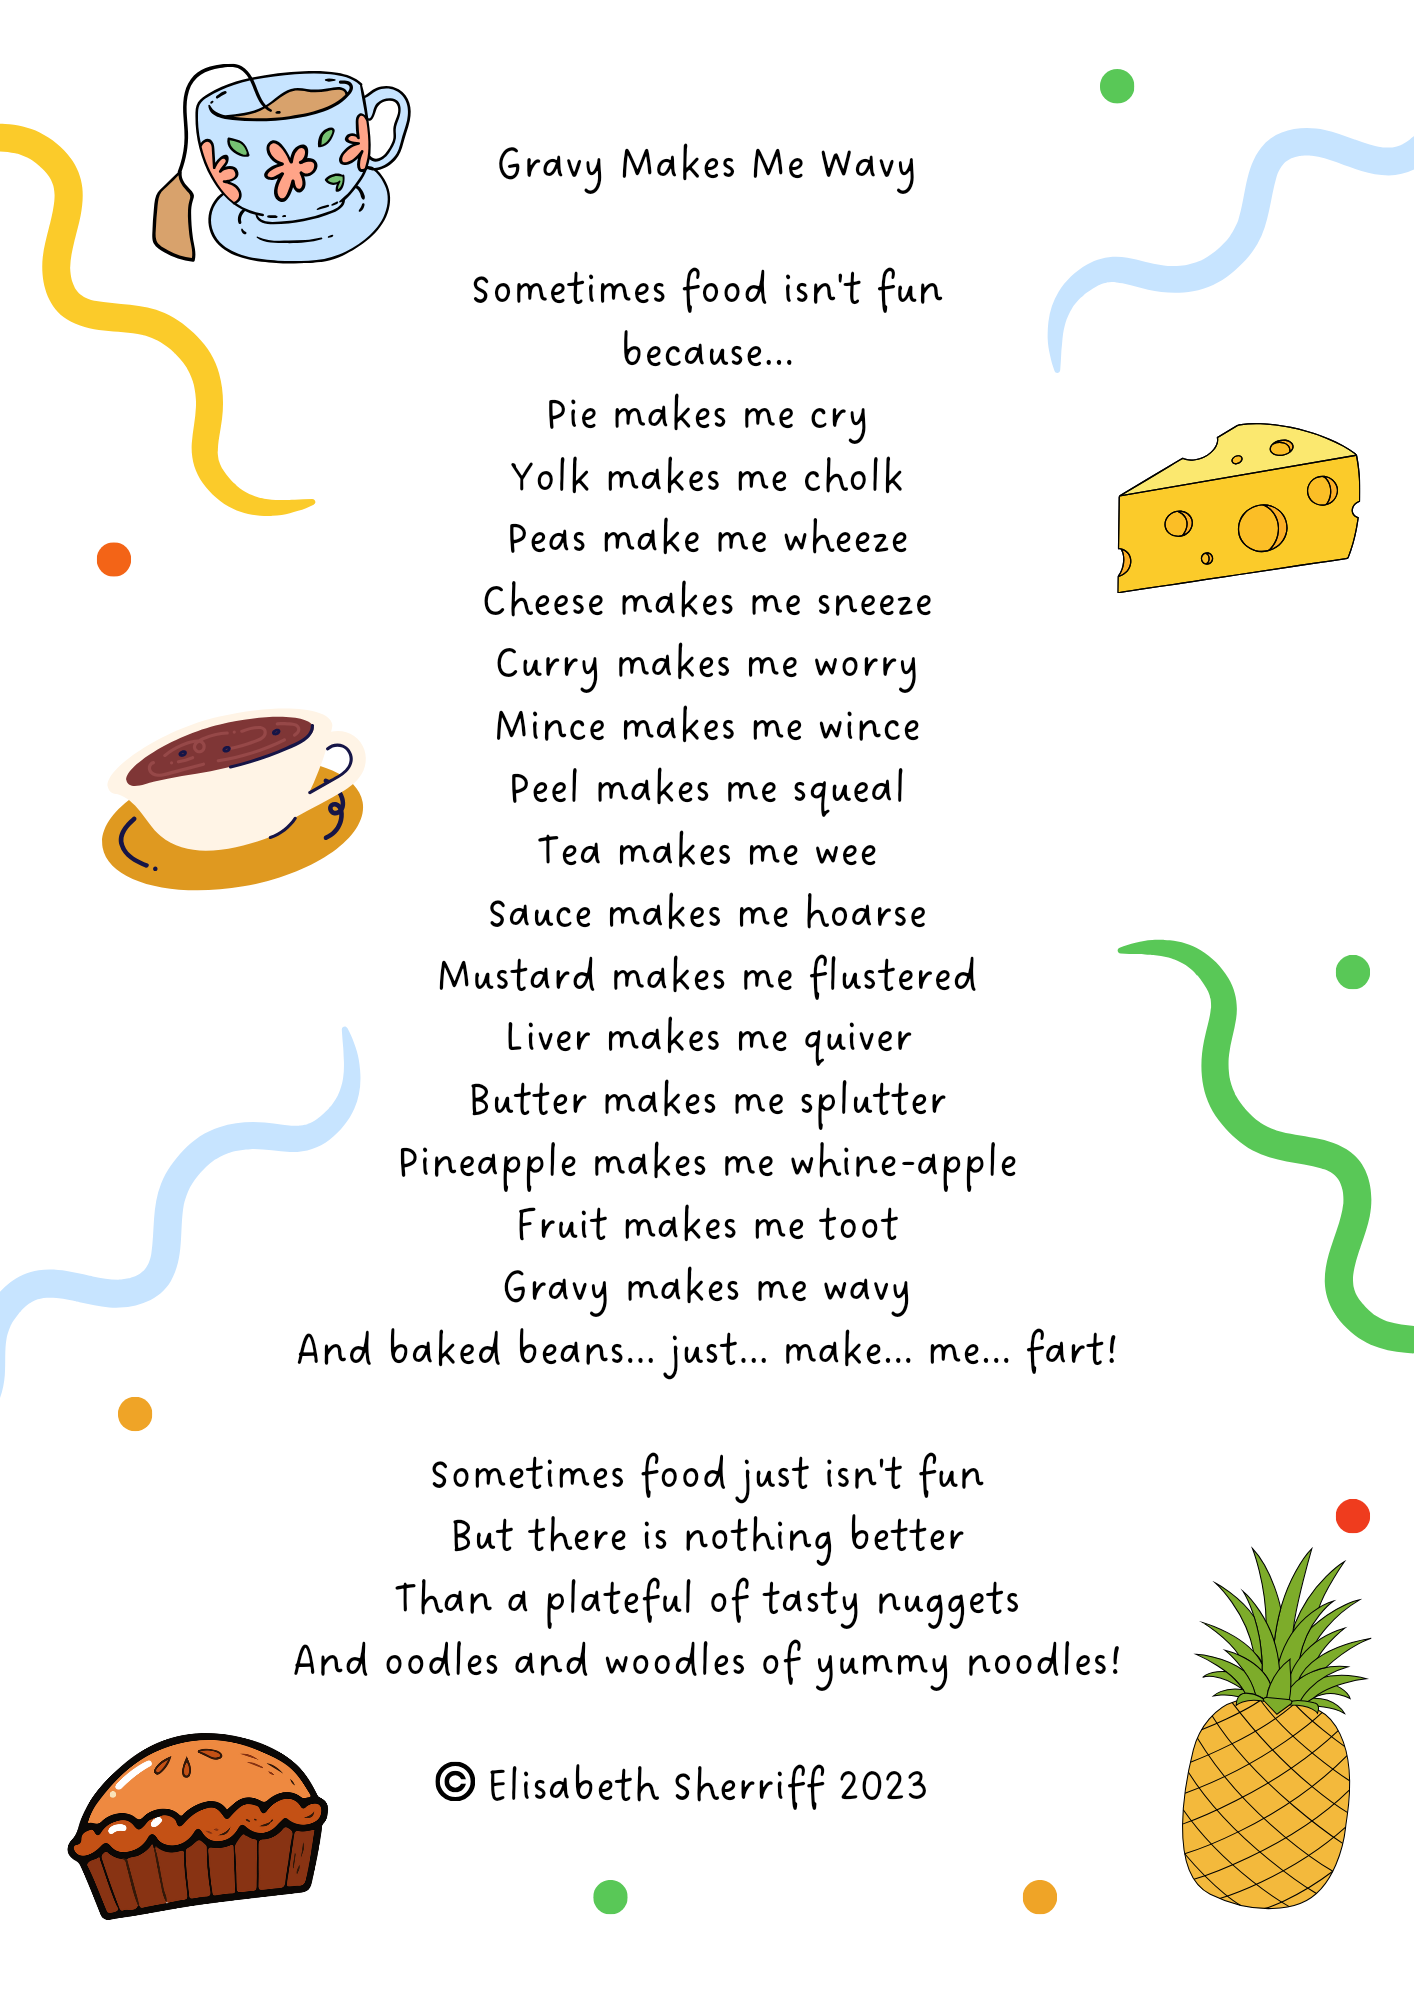 Gravy Makes Me Wavy
Sometimes food isn't fun
because...
Pie makes me cry
Yolk makes me cholk
Peas make me wheeze
Cheese makes me sneeze
Curry makes me worry
Mince makes me wince
Peel makes me squeal
Tea makes me wee
Sauce makes me hoarse
Mustard makes me flustered
Liver makes me quiver
Butter makes me splutter
Pineapple makes me whine-apple
Fruit makes me toot
Gravy makes me wavy
And baked beans... just... make... me... fart!
Sometimes food just isn't fun
But there is nothing better
Than a plateful of tasty nuggets
And oodles and woodles of yummy noodles!
© Elisabeth Sherriff 2023